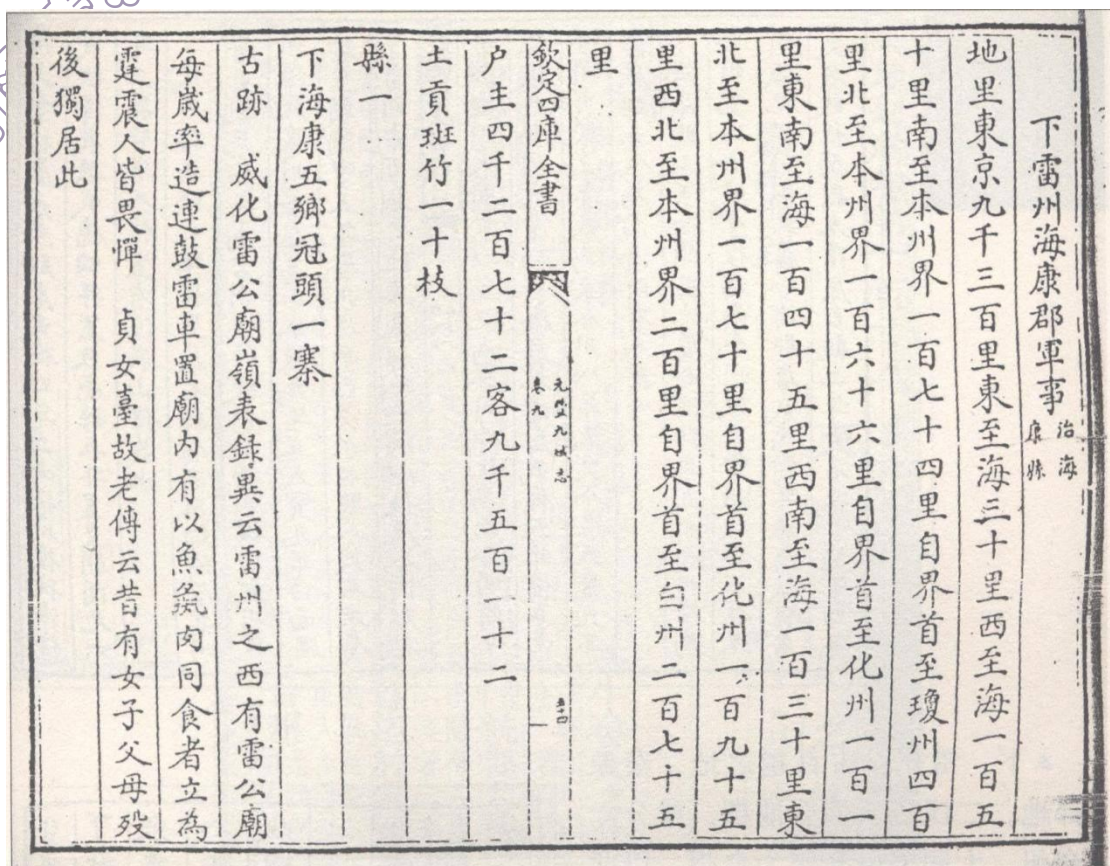 下雷州海康郡軍事治海康縣
地里東京九千三百里東至海三十里西至海一百五
十里南至本州界一百七十四里自界首至瓊州四百
里北至本州界一百六十六里自界首至化州一百一
里東南至海一百四十五里西南至海一百三十里東
北至本州界一百七十里自界首至化州一百九十五
里西北至本州界二百里自界首至白州二百七十五
里
欽定四庫全書 元豐九域志 卷九 五十四
户主四千二百七十二客九千五百一十二
土貢斑竹一十枝
縣一
下海康五鄉冠頭一寨
古跡 威化雷公廟嶺表録異云雷州之西有雷公廟
每嵗率造連鼓雷車置廟内有以魚彘肉同食者立為
霆震人皆畏憚 貞女臺故老傳云昔有女子父母殁
後獨居此